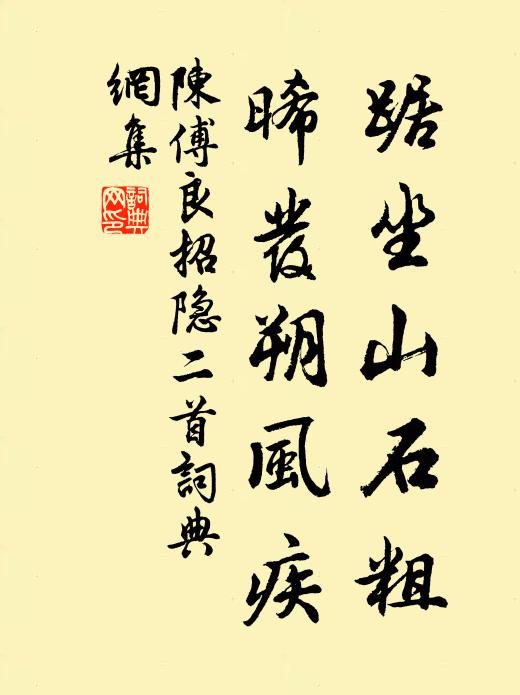 踞坐山石粗
晞发朔風疾
陳傅良招隐二首詞典
網集
詞典
网印